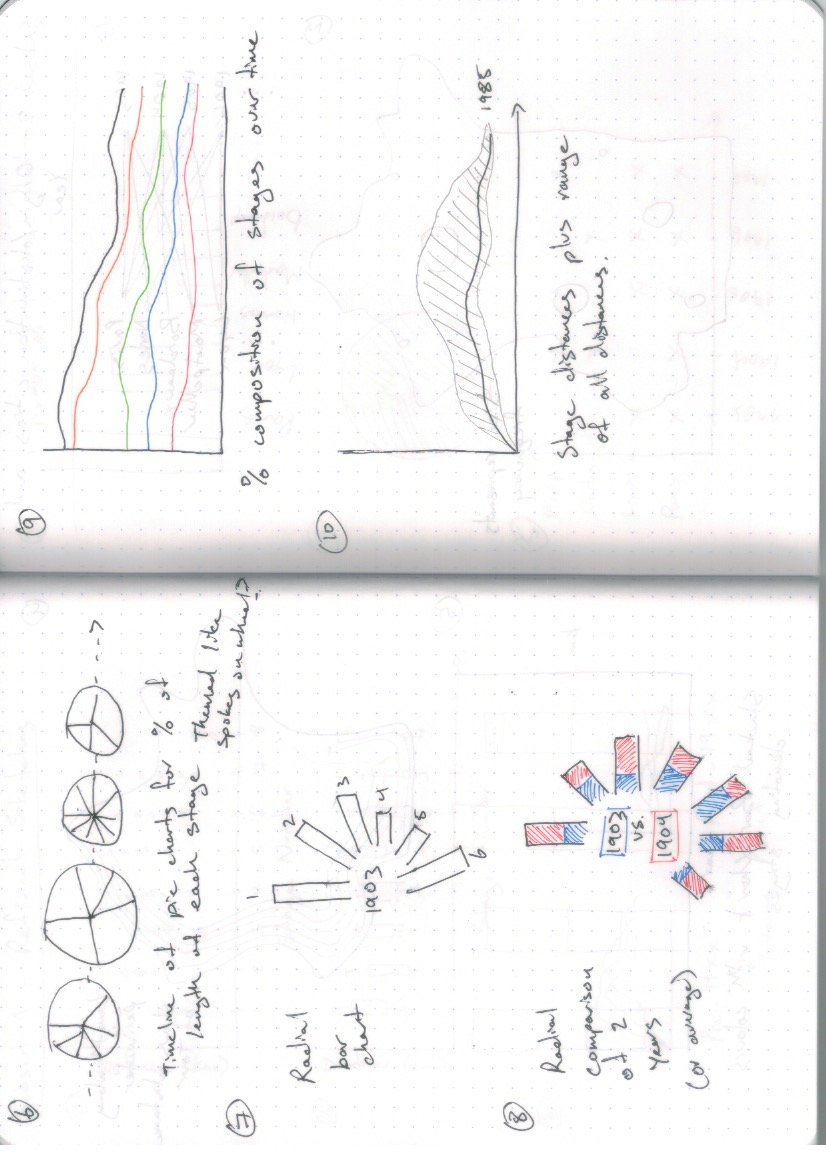 6
Timeline of pie charts for % of
length of each stage
Themed like
spokes on wheel?
7
Radial
bar
chart
1
2
3
4
5
6
1903
8
Radial
comparison
of 2
years
(or average)
1903
vs.
1904
9
% composition of stages over time
10
1985
Stage distances plus range
of all distances.